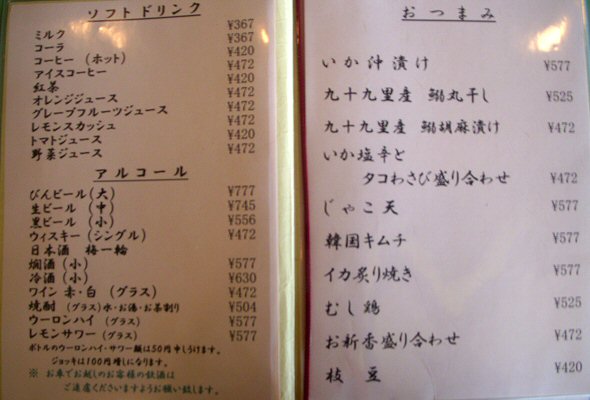 ソフトドリンク
ミルク ¥367
コーラ ¥367
コーヒー (ホット) ¥420
アイスコーヒー ¥472
紅茶 ¥420
オレンジジュース ¥472
グレープフルーツジュース ¥472
レモンスカッシュ ¥472
トマトジュース ¥420
野菜ジュース ¥472
アルコール
びんビール(大) ¥777
生ビール (中) ¥745
黒ビール (小) ¥556
ウィスキー(シングル) ¥472
日本酒 梅一輪
燗酒(小) ¥577
冷酒(小) ¥630
ワイン 赤・白 (グラス) ¥472
焼酎 (グラス)水・お湯・お茶割り ¥504
ウーロンハイ (グラス) ¥577
レモンサワー (グラス) ¥577
ボトルのウーロンハイ・サワー類は50円申しうけます。
ジョッキは100円増しになります。
※ お車でお越しのお客様の飲酒は
ご遠慮くださいますようお願い致します。
おつまみ
いか沖漬け ¥577
九十九里産 鰯丸干し ¥525
九十九里産 鰯胡麻漬け ¥472
いか塩辛と
タコわさび盛り合わせ ¥472
じゃこ天 ¥577
韓国キムチ ¥577
イカ炙り焼き ¥577
むし鶏 ¥525
お新香盛り合わせ ¥472
枝豆 ¥420